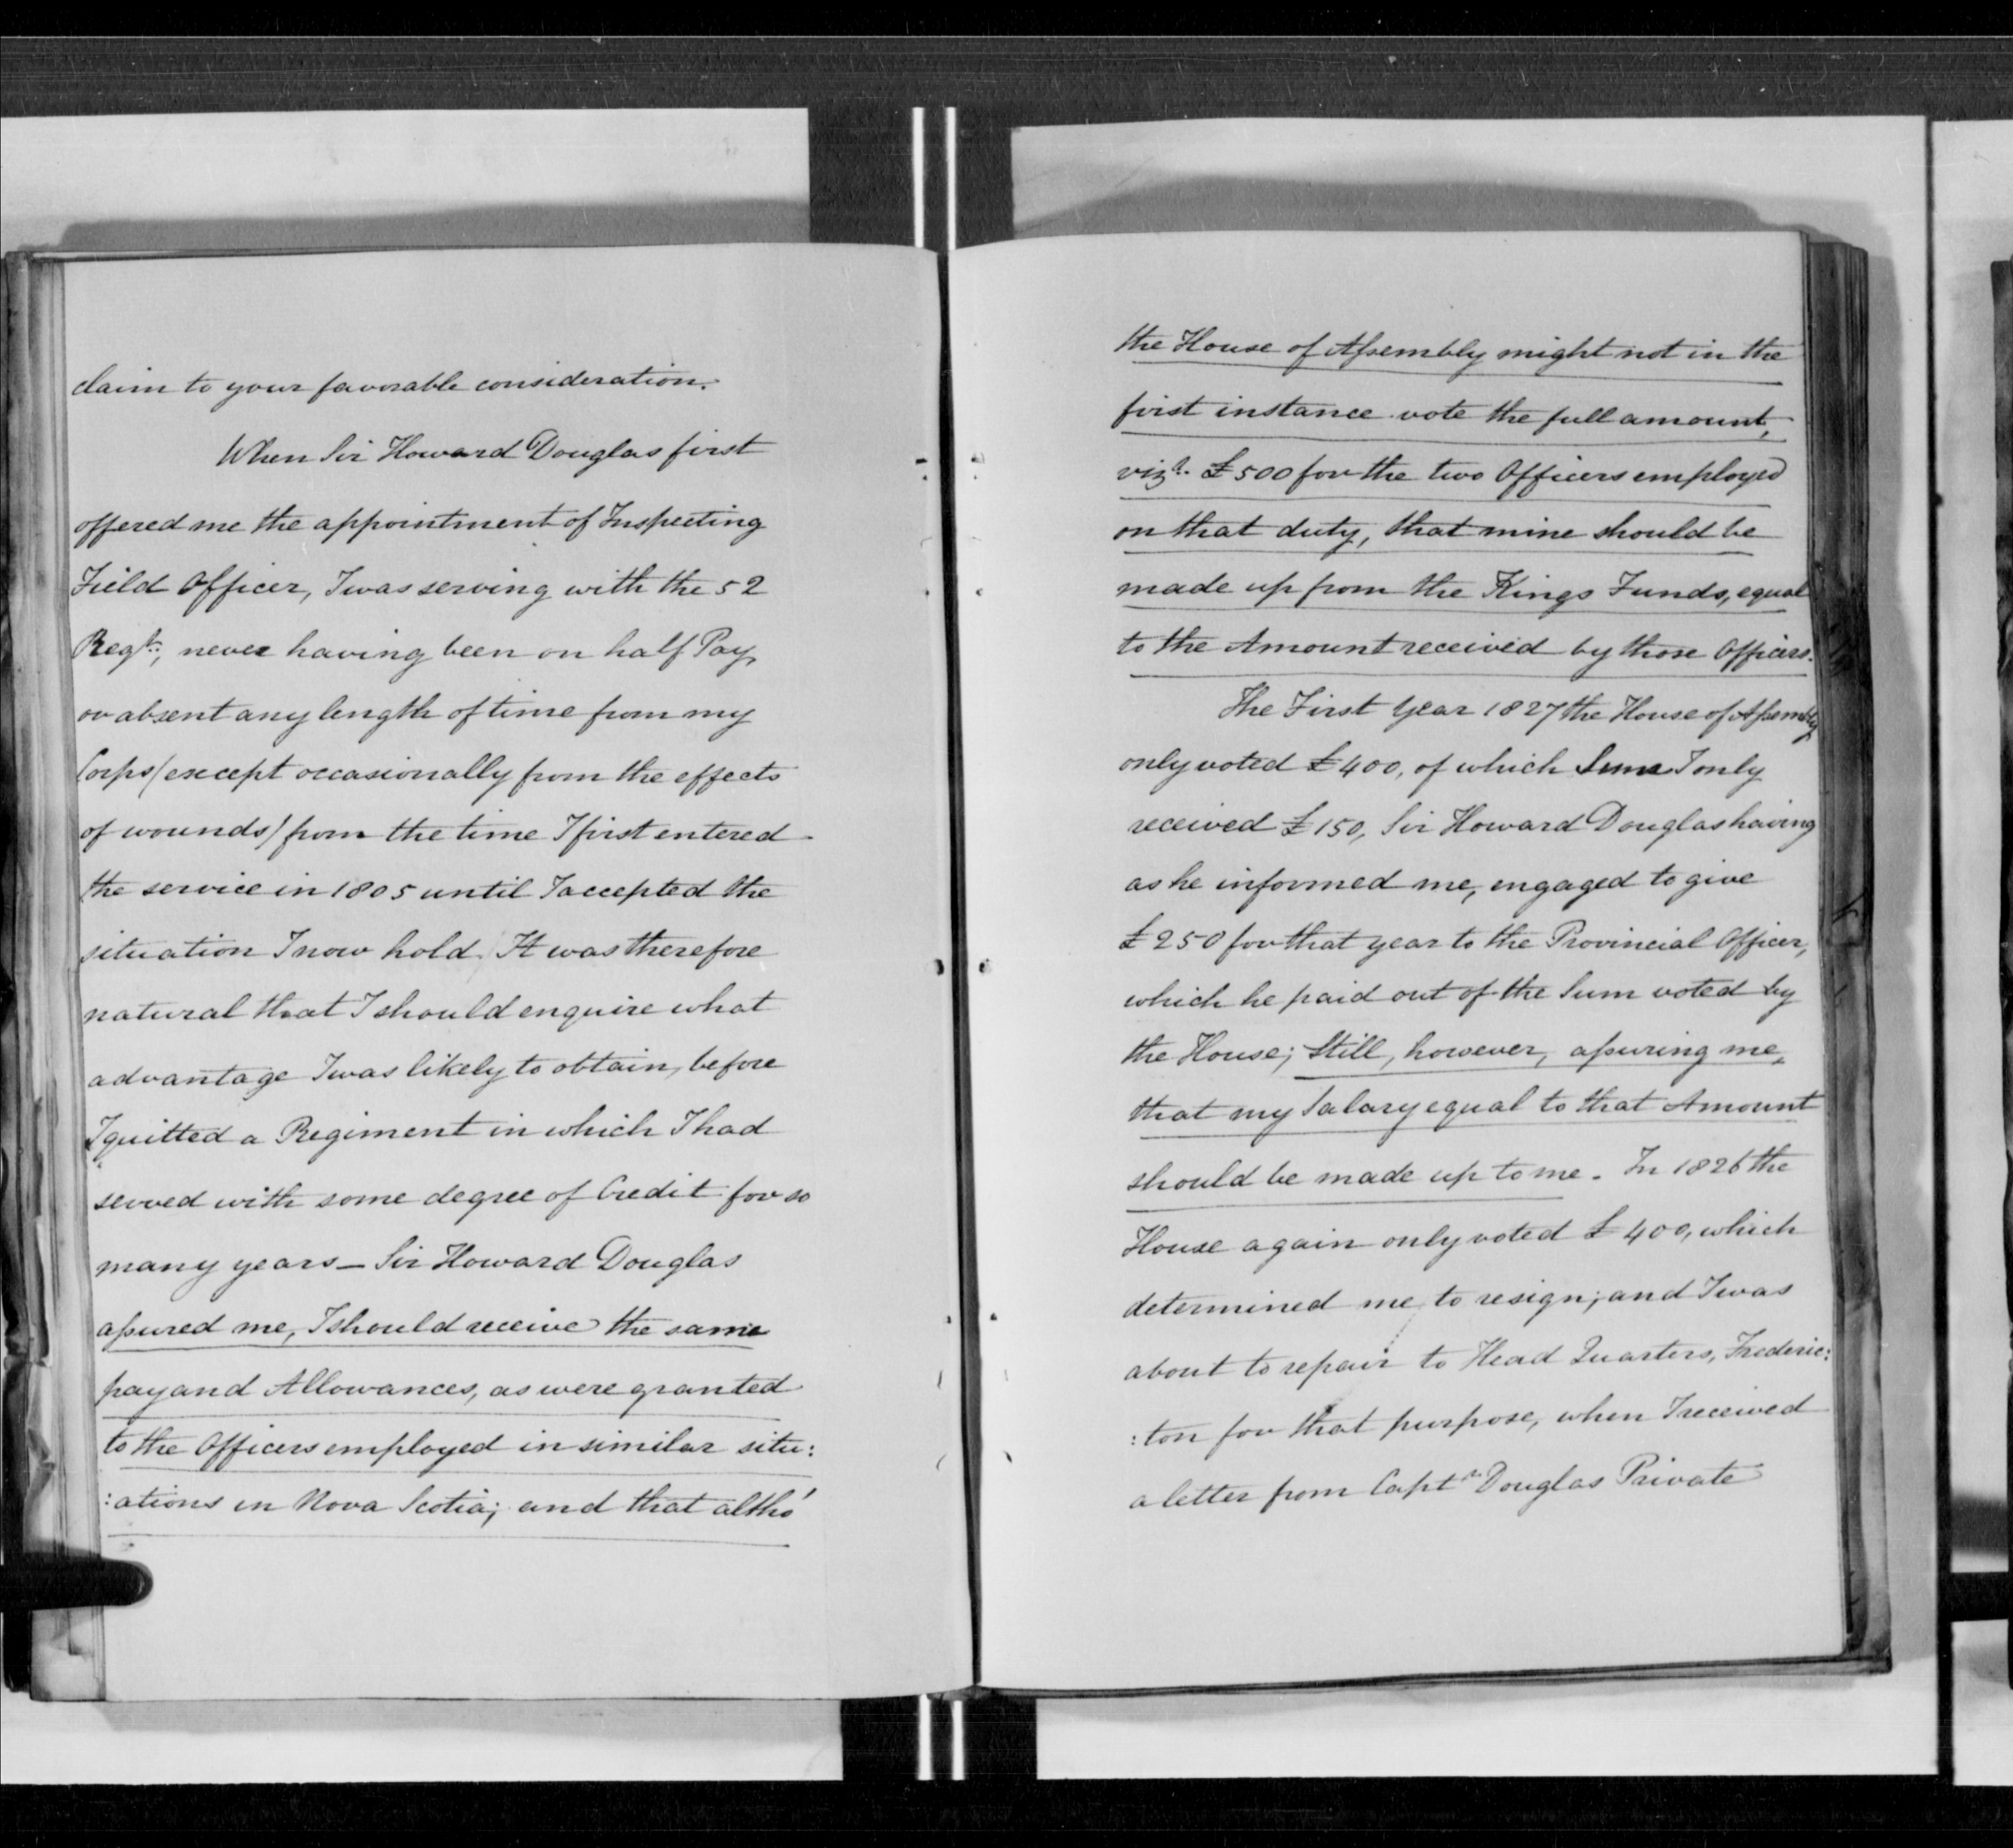 claim to your favorable consideration.
When Sir Howard Douglas first
offered me the appointment of Inspecting
Field Officer, I was serving with the 52
Regt., never having been on half Pay
or absent any length of time from my
Corps (except occasionally from the effects
of wounds) from the time I first entered
the service in 1805 until I accepted the
situation I now hold. It was therefore
natural that I should enquire what
advantage I was likely to obtain, before
I quitted a Regiment in which I had
served with some degree of Credit for so
many years – Sir Howard Douglas
assured me, I should receive the same
pay and Allowances, as were granted
to the Officers employed in similar situ:
:ations in Nova Scotia; and that altho'
the House of Assembly might not in the
first instance vote the full amount,
vizt. £500 for the two Officers employed
on that duty, that mine should be
made up from the Kings Funds, equal
to the Amount received by those Officers.
The First Year 1827 the House of Assembly
only voted £400, of which Sum I only
received £150, Sir Howard Douglas having
as he informed me, engaged to give
£250 for that year to the Provincial Officer,
which he paid out of the Sum voted by
the House; Still, however, assuring me,
that my Salary equal to that Amount
should be made up to me. In 1826 the
House again only voted £400, which
determined me to resign; and I was
about to repair to Head Quarters, Frederic:
:ton for that purpose, when I received
a letter from Captn Douglas Private